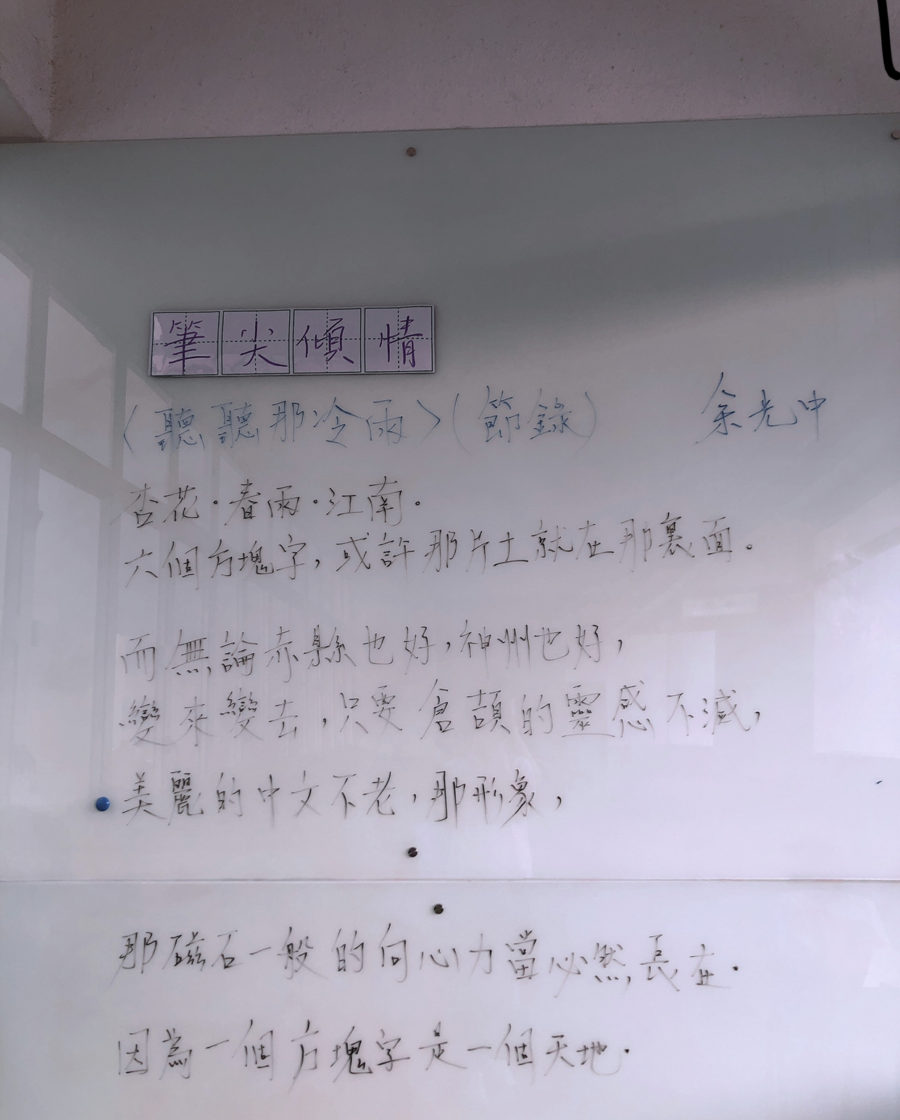 筆尖傾情
〈聽聽那冷雨〉(節錄) 余光中
杏花.春雨.江南.
六個方塊字,或許那片土就在那裏面。
而無論赤縣也好,神州也好,
變來變去,只要倉頡的靈感不減,
美麗的中文不老,那形象,
那磁石一般的向心力當必然長在.
因為一個方塊字是一個天地.